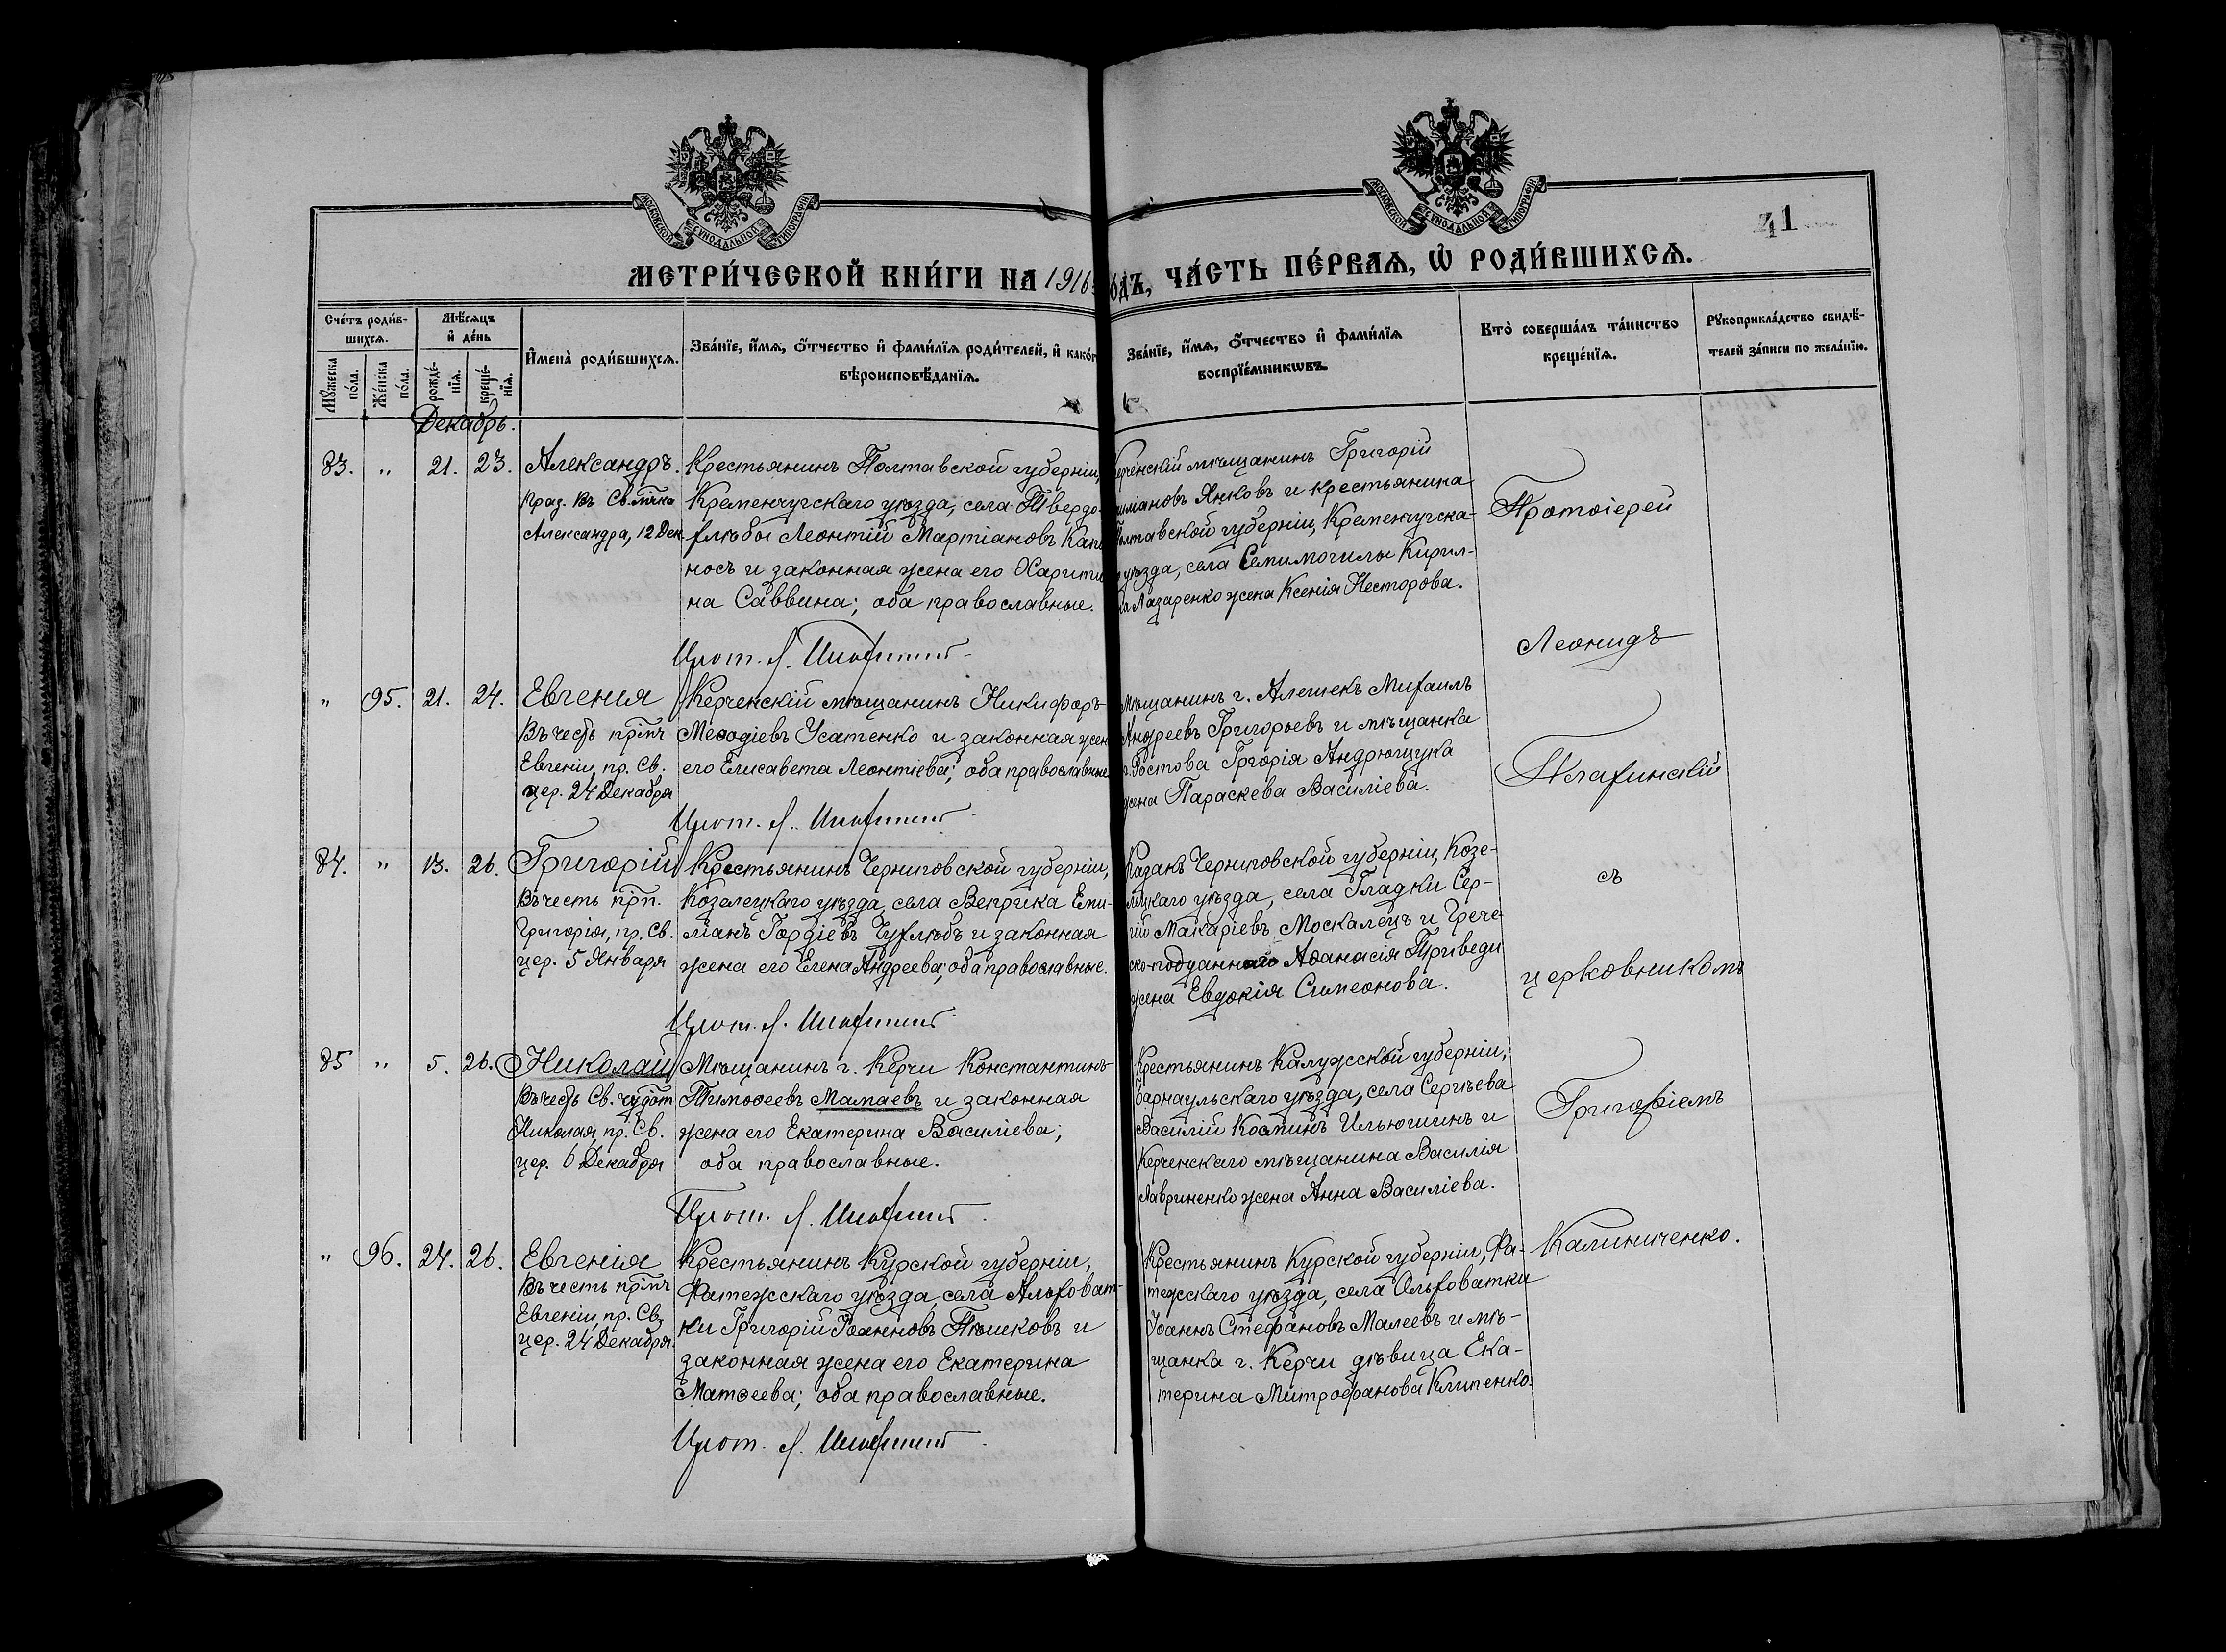 МОСКОВСКОЙ СУНОДАЛЬНОЙ ТИПОГРАФІИ
МОСКОВСКОЙ СУНОДАЛЬНОЙ ТИПОГРАФІИ
41
МЕТРИ́ЧЕСКОЙ КНИ́ГИ НА 1916
ОДЪ, ЧА́СТЬ ПЕ́РВАѦ, Ѡ РОДИ́ВШИХСѦ.
Сче́тъ роди́в-
шихсѧ.
Мꙋжеска по́ла.
Же́нска по́ла.
Мѣ́сѧцъ
и҆ де́нь
рожде́-
нїѧ.
креще́-
нїѧ.
И҆мена̀ роди́вшихсѧ.
Зва́нїе, и҆́мѧ, ѻ҆́тчество и҆ фами́лїѧ роди́телей, и҆ како́г
вѣроисповѣ́данїѧ.
Зва́нїе, и҆́мѧ, ѻ҆́тчество и҆ фами́лїѧ
воспрїе́мникѡвъ.
Кто̀ соверша́лъ та́инство
креще́нїѧ.
Рꙋкоприкла́дство свидѣ́-
телей за́писи по жела́нїю.
Декабрь.
83. " 21. 23. Александръ.
Праз. въ Св. мчка
Александра, 12 Дек
Крестьянинъ Полтавской губерніи,
Кременчугскаго уѣзда, села Твердо-
хлѣбы Леонтій Мартіановъ Кап
носъ и законная жена его Харити
на Саввина; оба православные.
Керченскій мѣщанинъ Григорій
иміановъ Янковъ и крестьянина
Полтавской губерніи, Кременчугска-
уѣзда, села Семимогилы Кирил-
ла Лазаренко жена Ксенія Несторова.
Прот. Л.
" 95. 21. 24. Евгенія
Въ честь прмч
Евгеніи, пр. Св.
цер. 24 Декабря
Керченскій мѣщанинъ Никифоръ
Меѳодіевъ Усатенко и законная жен
его Елисавета Леонтіева; оба православные
Мѣщанинъ г. Алешекъ Михаилъ
Андреевъ Григорьевъ и мѣщанка
г. Ростова Григорія Андрющука
жена Параскева Василіева.
Прот. Л.
84. " 13. 26. Григорій
Въ честь прп.
Григорія, пр. Св.
цер. 5 Января
Крестьянинъ Черниговской губерніи,
Козелецкаго уѣзда, села Веприка Еми-
ліанъ Гордіевъ Чухлѣбъ и законная
жена его Елена Андреева; оба православные.
Казакъ Черниговской губерніи, Козе-
лецкаго уѣзда, села Гладки Сер-
гій Макаріевъ Москалецъ и Грече-
ско-подданнаго Аѳанасія Триведи
жена Евдокія Симеонова.
Прот. Л.
85 " 5. 26. Николай
Въ честь Св. чудот
Николая, пр. Св.
цер. 6 Декабря
Мѣщанинъ г. Керчи Константинъ
Тимоѳеевъ Мамаевъ и законная
жена его Екатерина Василіева;
оба православные.
Крестьянинъ Калужской губерніи,
барнаульскаго уѣзда, села Сергѣева
Василій Косминъ Ильюшинъ и
Керченскаго мѣщанина Василія
Лавриненко жена Анна Василіева.
Прот. Л.
" 96. 24. 26. Евгенія
Въ честь прмч
Евгеніи, пр. Св.
цер. 24 Декабря.
Крестьянинъ Курской губерніи,
Фатежскаго уѣзда, села Альховат-
ки Григорій Іоанновъ Пѣшковъ и
законная жена его Екатерина
Матѳеева; оба православные.
Крестьянинъ Курской губерніи, Фа-
тежскаго уѣзда, села Ольховатки
Іоаннъ Стефановъ Малеевъ и мѣ-
щанка г. Керчи дѣвица Ека-
терина Митрофанова Клипенко.
Прот. Л.
Протоіерей
Леонидъ
съ
церковникомъ
Григоріемъ
Калиниченко.